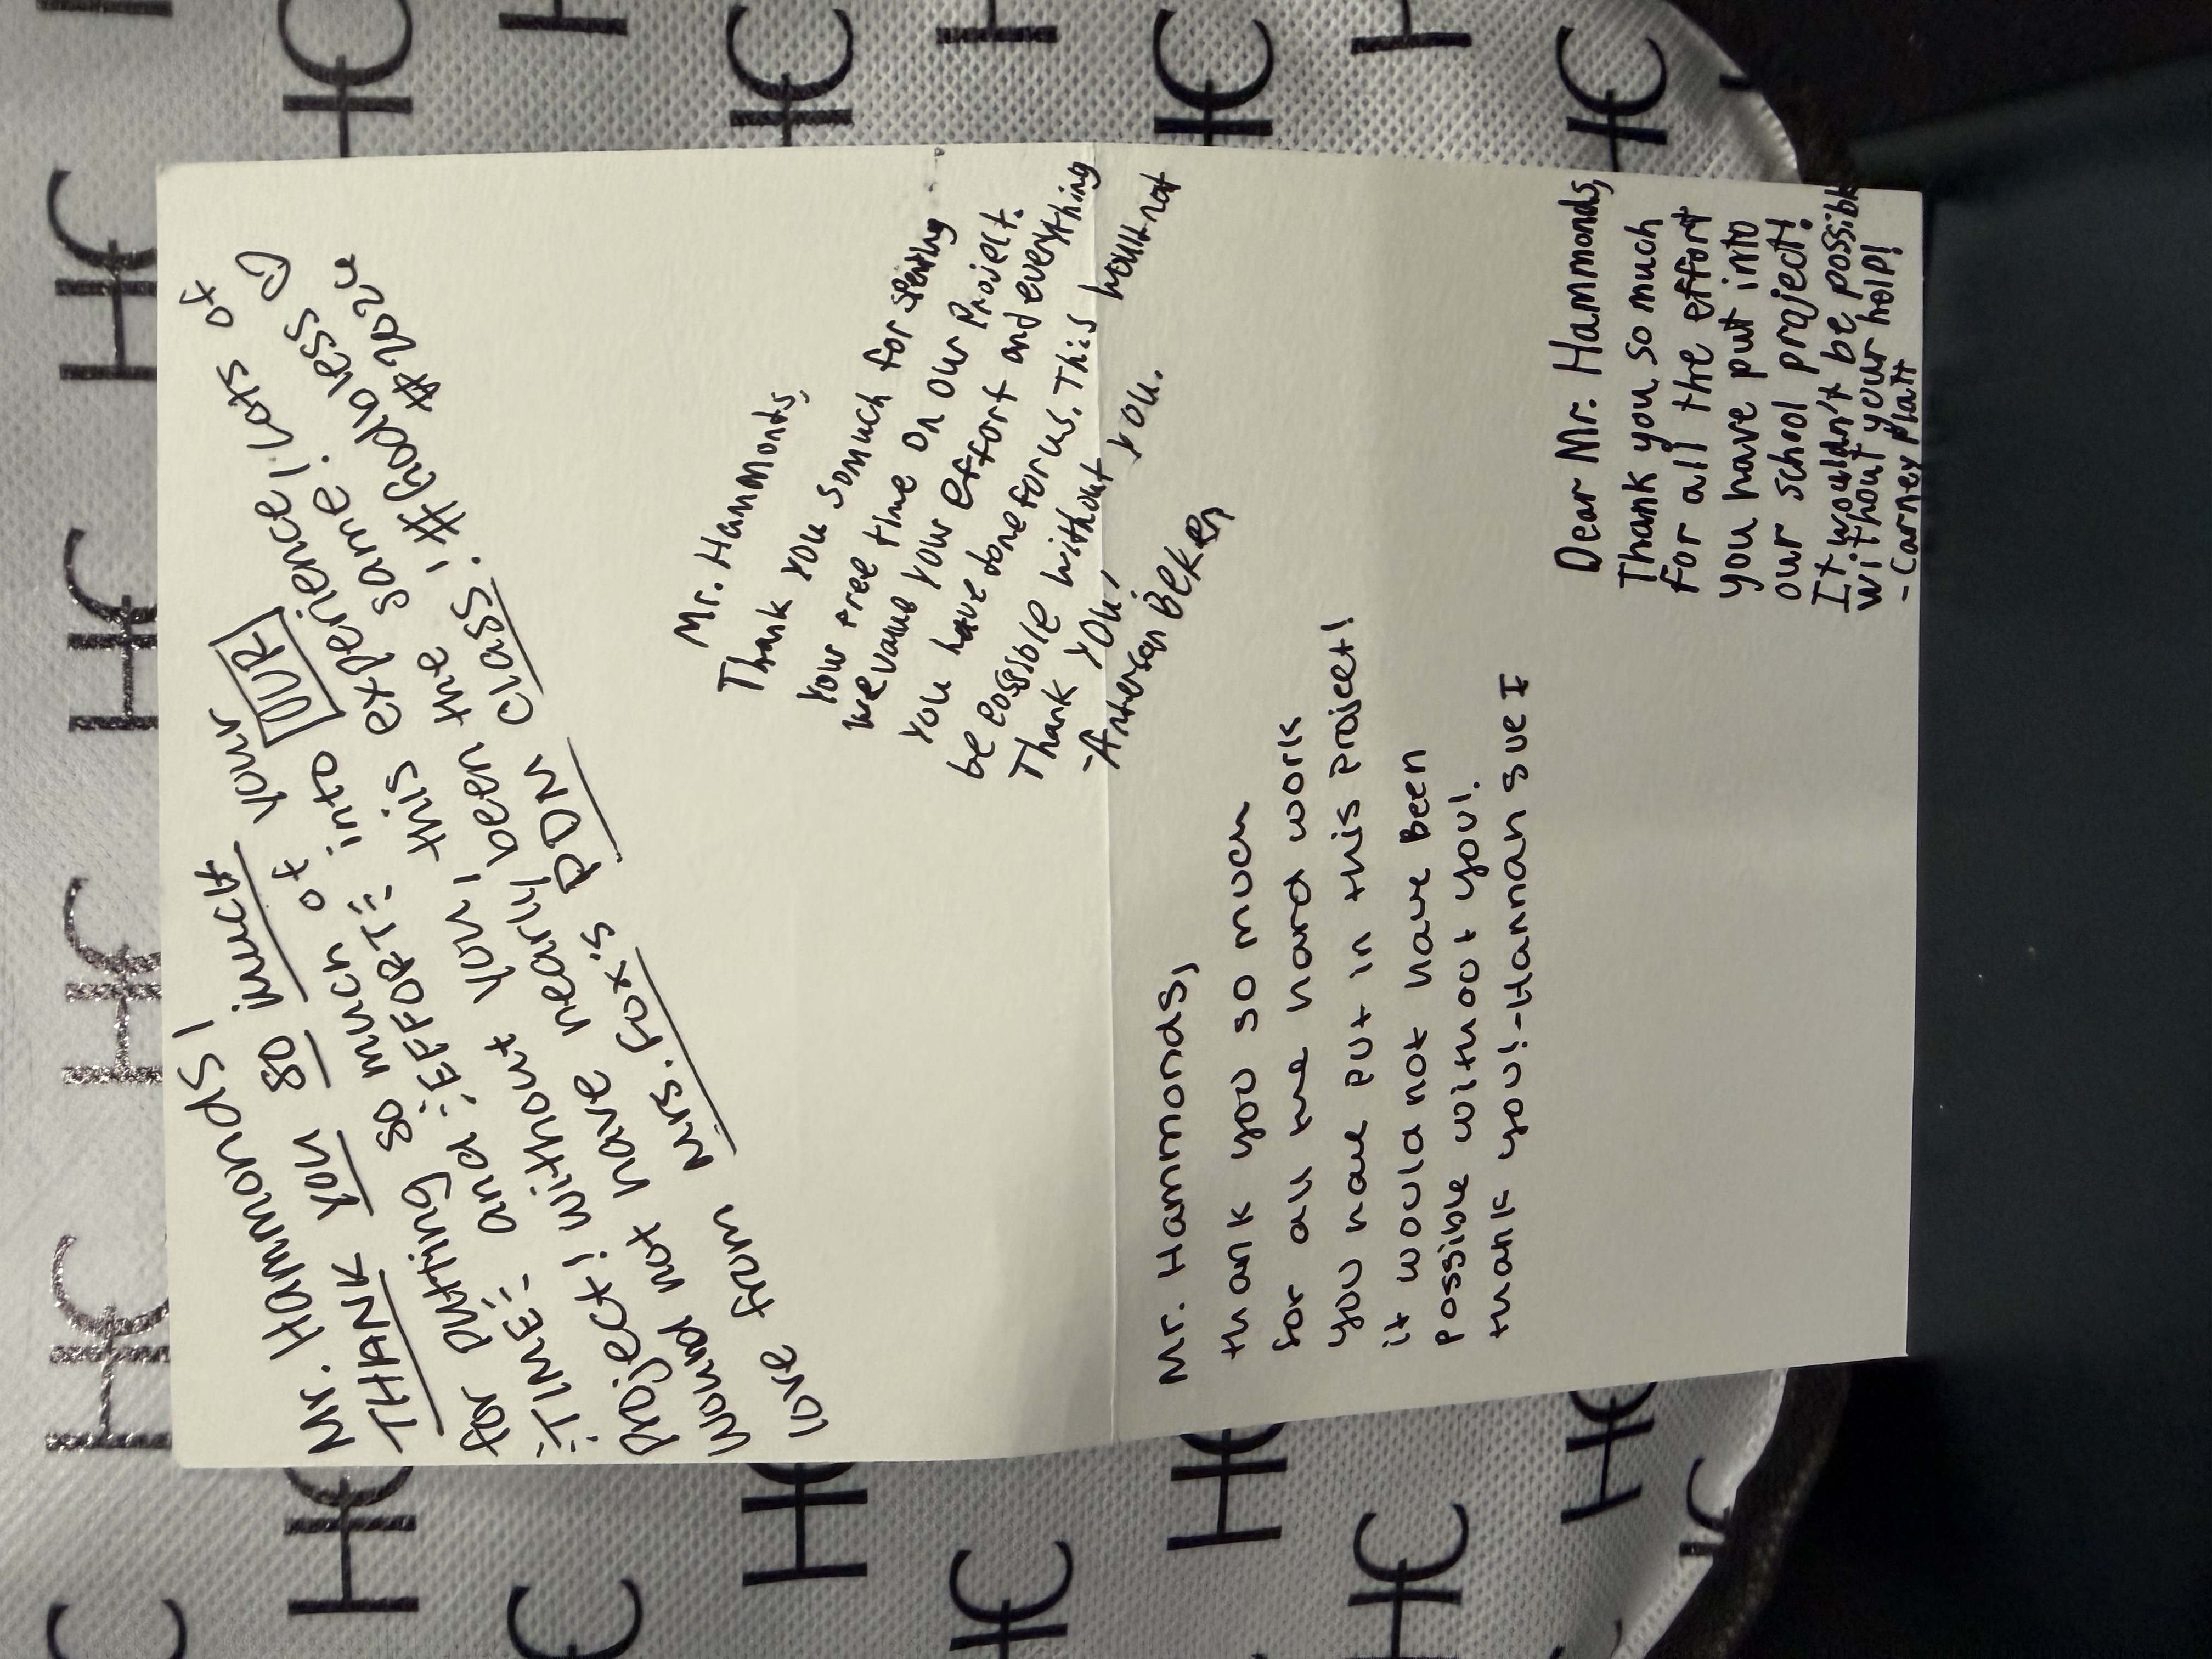 Mr. Hammonds!
THANK you so much
for putting so much of your
"TIME" and "EFFORT" into OUR
project! without you, this experience
would not have nearly been the same! Lots of
love from Mrs. Fox's PDM class! #Godbless
#love
Mr. Hammonds,
Thank you somuch for
your free time on our Project.
we value your effort and everything
you have done for us. This would not
be possible without you.
Thank you,
-Anderson Beken
Mr. Hammonds,
thank you so much
for all the hard work
you have put in this project!
it would not have been
possible without you!
thank you! -Hannah Sue I
Dear Mr. Hammonds,
Thank you so much
for all the effort
you have put into
our school project!
It wouldn't be possible
without your help!
-Carney Platt
HC